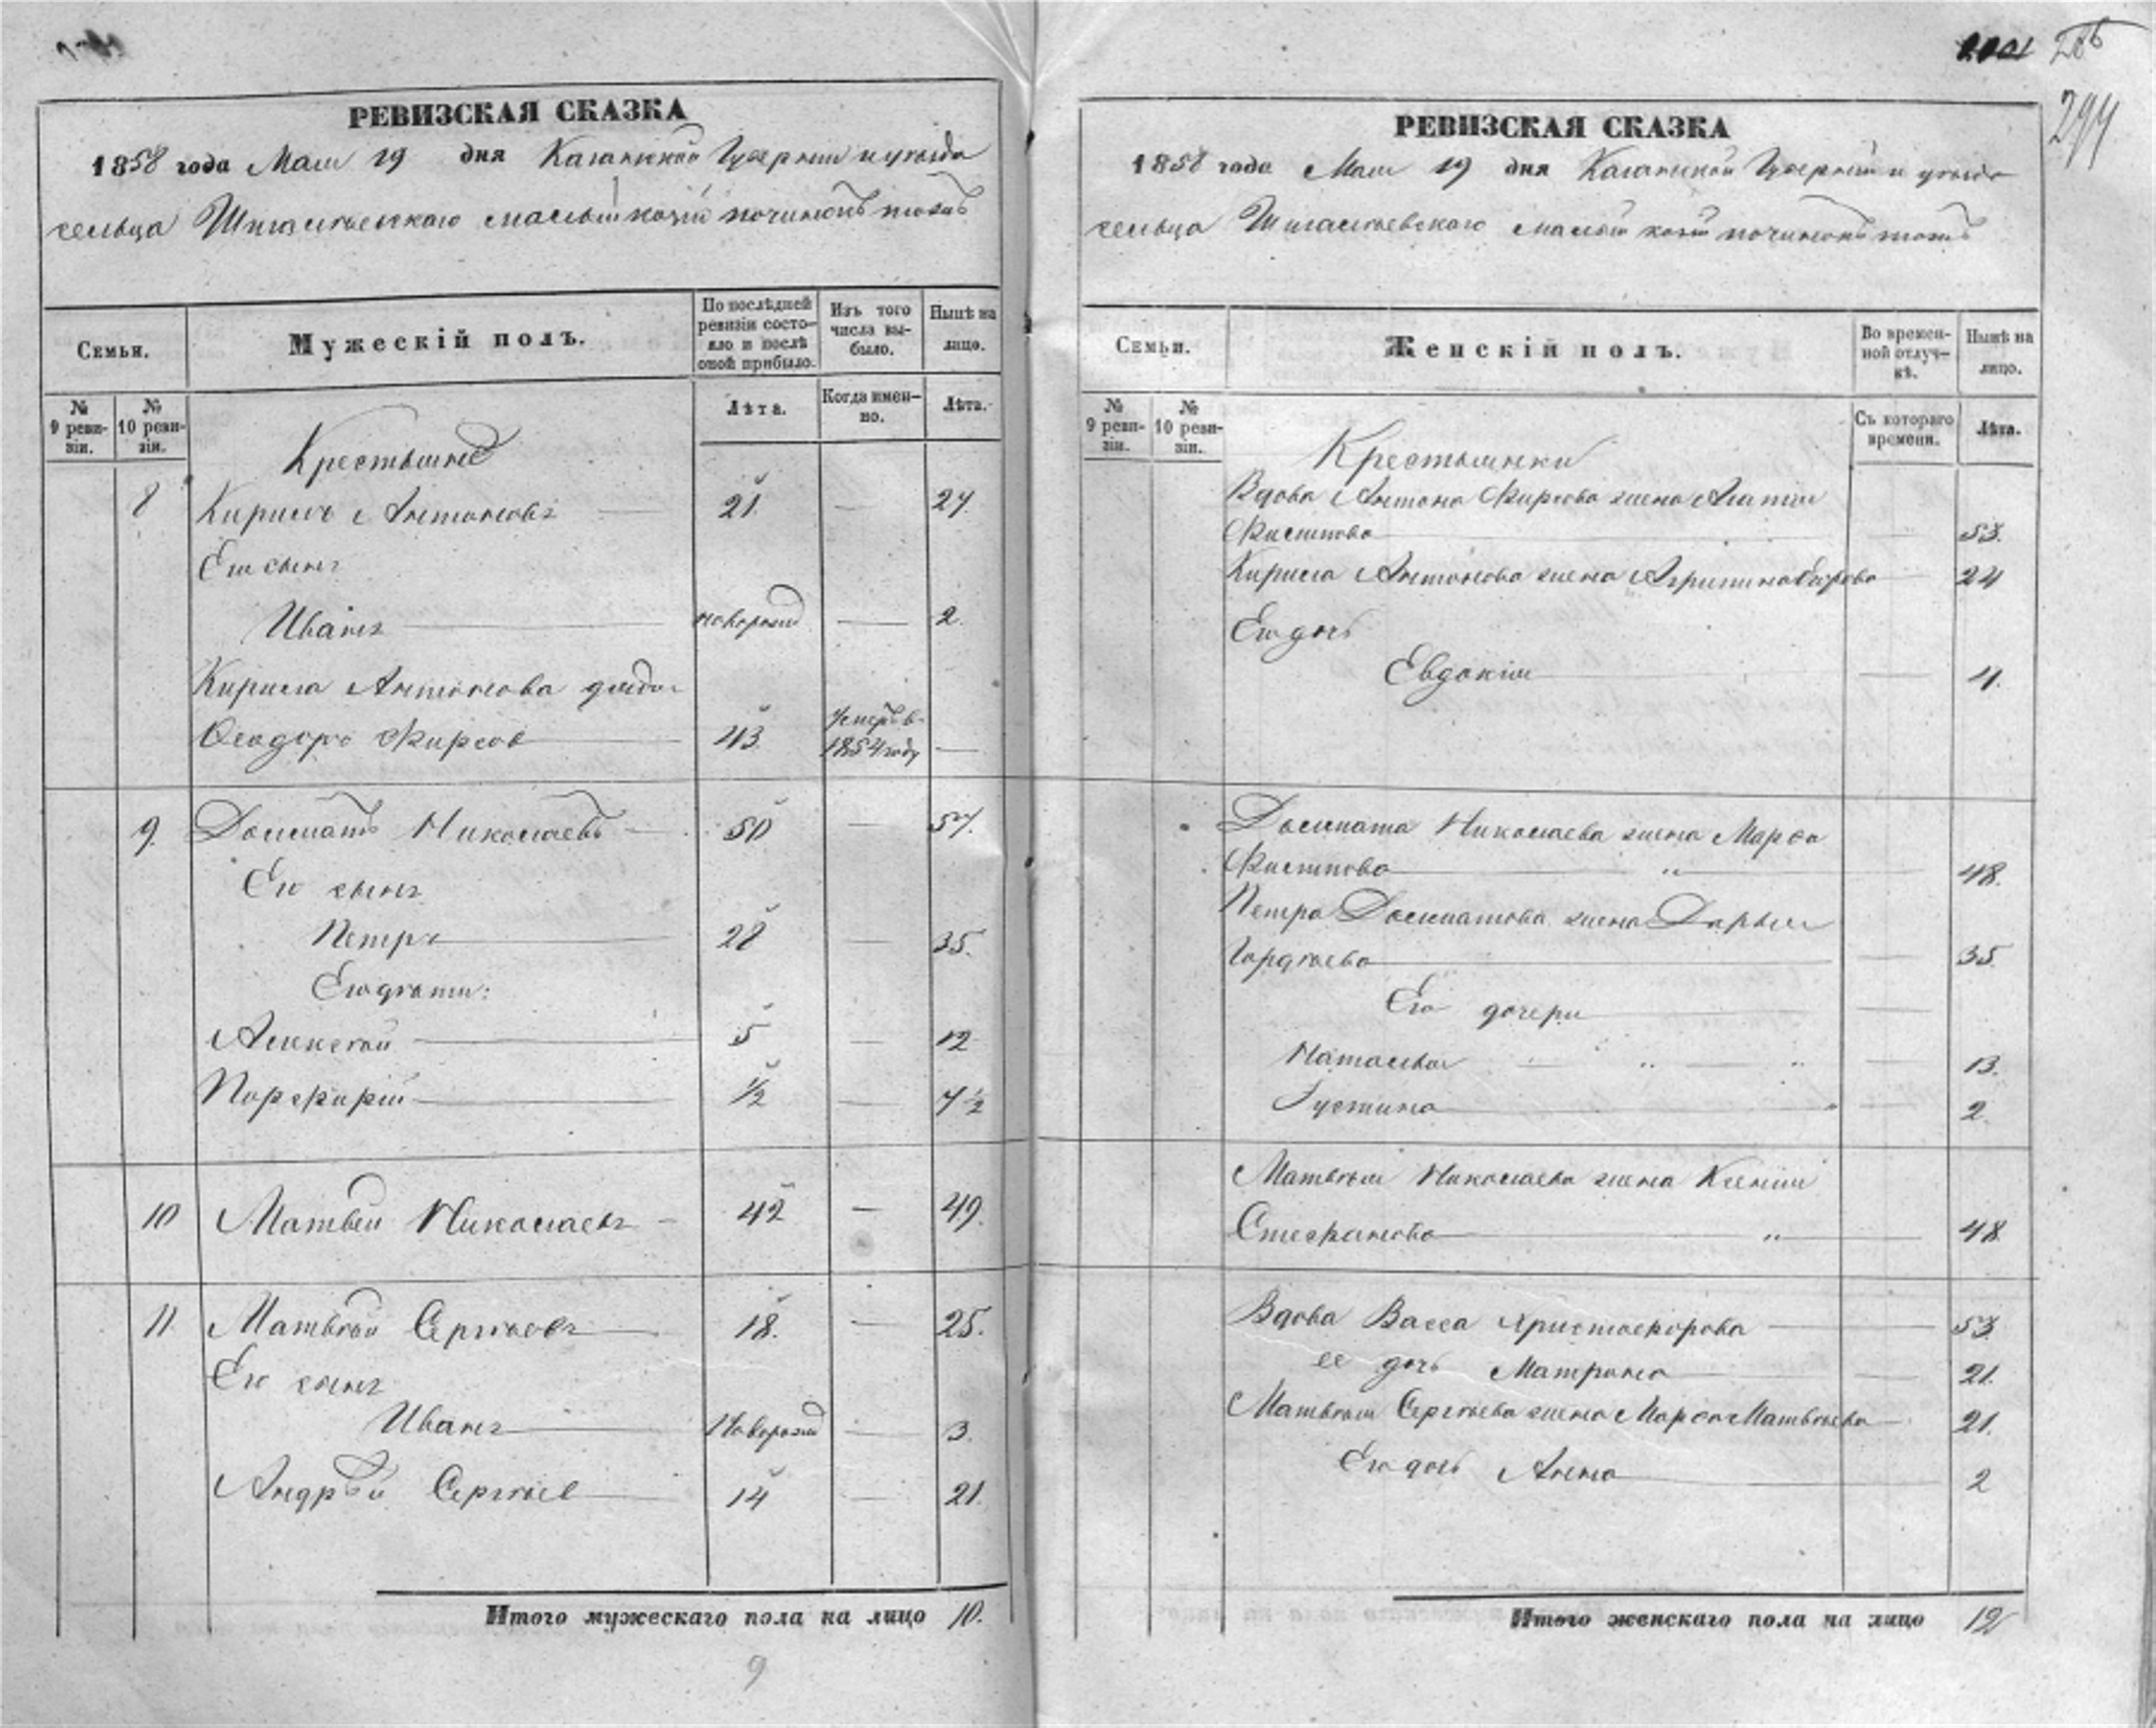 РЕВИЗСКАЯ СКАЗКА
1858 года Мая 19 дня Казанской Губернiи и уѣзда
сельца Шигалеевскаго малый починокъ тожъ
Семьи.
Мужескiй полъ.
По послѣдней ревизiи состояло и послѣ оной прибыло.
Изъ того числа выбыло.
Нынѣ на лицо.
№ 9 ревизiи.
№ 10 ревизiи.
Лѣта.
Когда именно.
Лѣта.
Крестьяне
8 Кирилъ Антоновъ 21 — 27.
Его сынъ
Иванъ новорожд — 2.
Кирила Антонова дядя
Ѳеодоръ Фирсов 43 умеръ в 1854 году —
9. Долматъ Николаевъ 50 — 57.
Его сынъ
Петръ 28 — 35.
Его дѣти:
Алексѣй 5 — 12
Порфирiй 1/2 — 7 1/2
10 Матвѣй Николаевъ 42 — 49.
11. Матвѣй Сергѣевъ 18. — 25.
Его сынъ
Иванъ Новорожд — 3.
Андрѣй Сергѣев 14 — 21.
Итого мужескаго пола на лицо 10.
9
294
РЕВИЗСКАЯ СКАЗКА
1858 года Мая 19 дня Казанской Губернiи и уѣзда
сельца Шигалеевскаго малый починокъ тожъ
Семьи.
Женскiй полъ.
Во временной отлучкѣ.
Нынѣ на лицо.
№ 9 ревизiи.
№ 10 ревизiи.
Съ котораго времени.
Лѣта.
Крестьянки
Вдова Антона Фирсова жена
Филипова 53.
Кирила Антонова жена Агрипина 24
Его дочь
Евдокiя 4.
Долмата Николаева жена Марфа
Филипова 48.
Петра Долматова жена Дарья
Гордѣева 35
Его дочери
Наталья 13.
Устина 2.
Матвѣя Николаева жена Ксенiя
Стефанова 48
Вдова Васса Христофорова 53
ее дочь Матрона 21.
Матвѣя Сергѣева жена Марфа Матвѣева 21.
Его дочь Анна 2
Итого женскаго пола на лицо 12